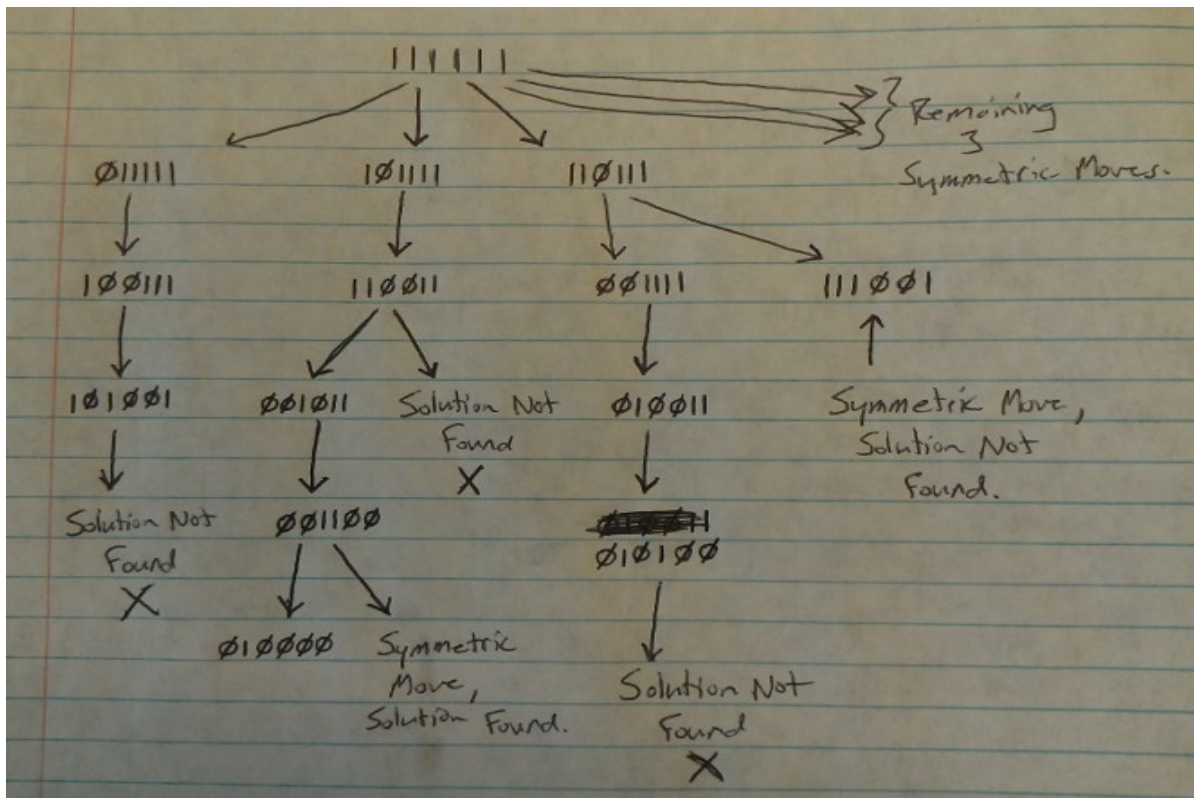 111111
Remaining
3
Symmetric Moves.
011111
101111
110111
100111
110011
001111
111001
101001
001011
Solution Not
Found
X
010011
Symmetric Move,
Solution Not
Found.
Solution Not
Found
X
001100
010100
010000
Symmetric
Move,
Solution Found.
Solution Not
Found
X